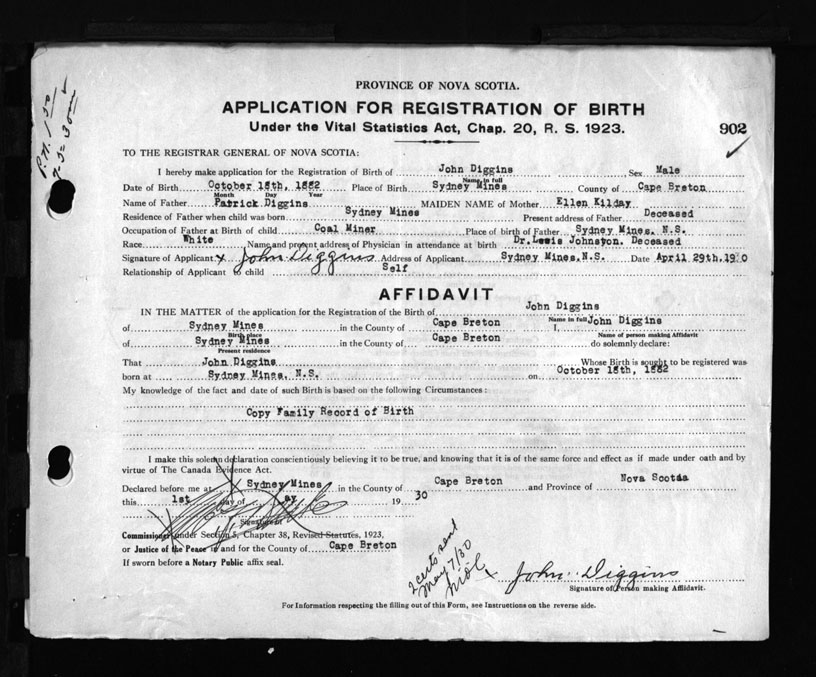 PROVINCE OF NOVA SCOTIA.
APPLICATION FOR REGISTRATION OF BIRTH
Under the Vital Statistics Act, Chap. 20, R. S. 1923.
902
TO THE REGISTRAR GENERAL OF NOVA SCOTIA:
I hereby make application for Registration of Birth of John Diggins Sex Male
Name in full
Date of Birth October 18th, 1882 Place of Birth Sydney Mines County of Cape Breton
Month Day Year
Name of Father Patrick Diggins MAIDEN NAME of Mother Ellen Kilday
Residence of Father when child was born Sydney Mines Present address of Father Deceased
Occupation of Father at Birth of child Coal Miner Place of birth of Father Sydney Mines, N.S.
Race White Name and present address of Physician in attendance at birth Dr. Lewis Johnston. Deceased
Signature of Applicant x John Diggins Address of Applicant Sydney Mines, N.S. Date April 29th. 1930
Relationship of Applicant to child Self
AFFIDAVIT
IN THE MATTER of the application for the Registration of the Birth of John Diggins
Name in full
of Sydney Mines in the County of Cape Breton I, John Diggins
Birth place Name of person making Affidavit
of Sydney Mines in the County of Cape Breton do solemnly declare:
Present residence
That John Diggins Whose Birth is sought to be registered was
born at Sydney Mines, N.S. on October 18th, 1882
My knowledge of the fact and date of such Birth is based on the following Circumstances:
Copy Family Record of Birth
I make this solemn declaration conscientiously believing it to be true, and knowing that it is of the same force and effect as if made under oath and by
virtue of The Canada Evidence Act.
Declared before me at Sydney Mines in the County of Cape Breton and Province of Nova Scotia
this 1st day of May 19 30
Signature of
Commissioner under Section 5, Chapter 38, Revised Statutes, 1923,
or Justice of the Peace in and for the County of Cape Breton
If sworn before a Notary Public affix seal.
2 certs send
May 7/30
x John Diggins
Signature of Person making Affidavit.
For Information respecting the filling out of this Form, see Instructions on the reverse side.